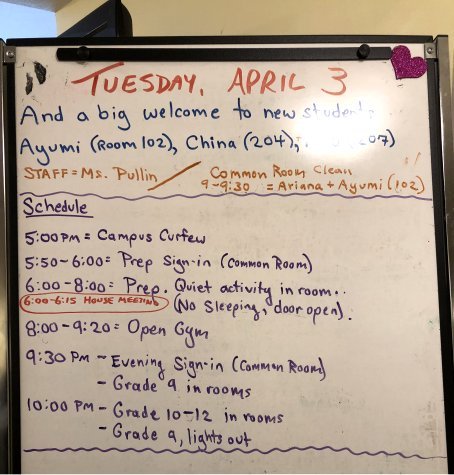 TUESDAY, APRIL 3
And a big welcome to new students
Ayumi (Room 102), China (204), 207)
STAFF = Ms. Pullin
Common Room Clean
9-9:30 = Ariana + Ayumi (102)
Schedule
5:00 PM = Campus Curfew
5:50-6:00 = Prep Sign-in (Common Room)
6:00-8:00 = Prep. Quiet activity in room..
6:00-6:15 HOUSE MEETING (No Sleeping, door open).
8:00-9:20 = Open Gym
9:30 PM - Evening Sign-in (Common Room)
- Grade 9 in rooms
10:00 PM - Grade 10-12 in rooms
- Grade 9, lights out